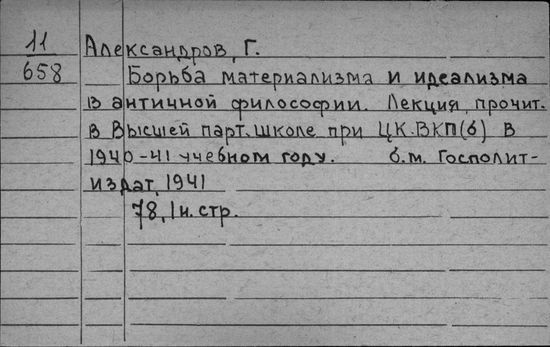 11 Александров, Г.
658 Борьба материализма и идеализма
в античной философии. Лекция, прочит.
в Высшей парт. школе при ЦК.ВКП(б) в
1940-41 учебном году. б.м. Госполит-
издат, 1941
78, 1 н. стр.